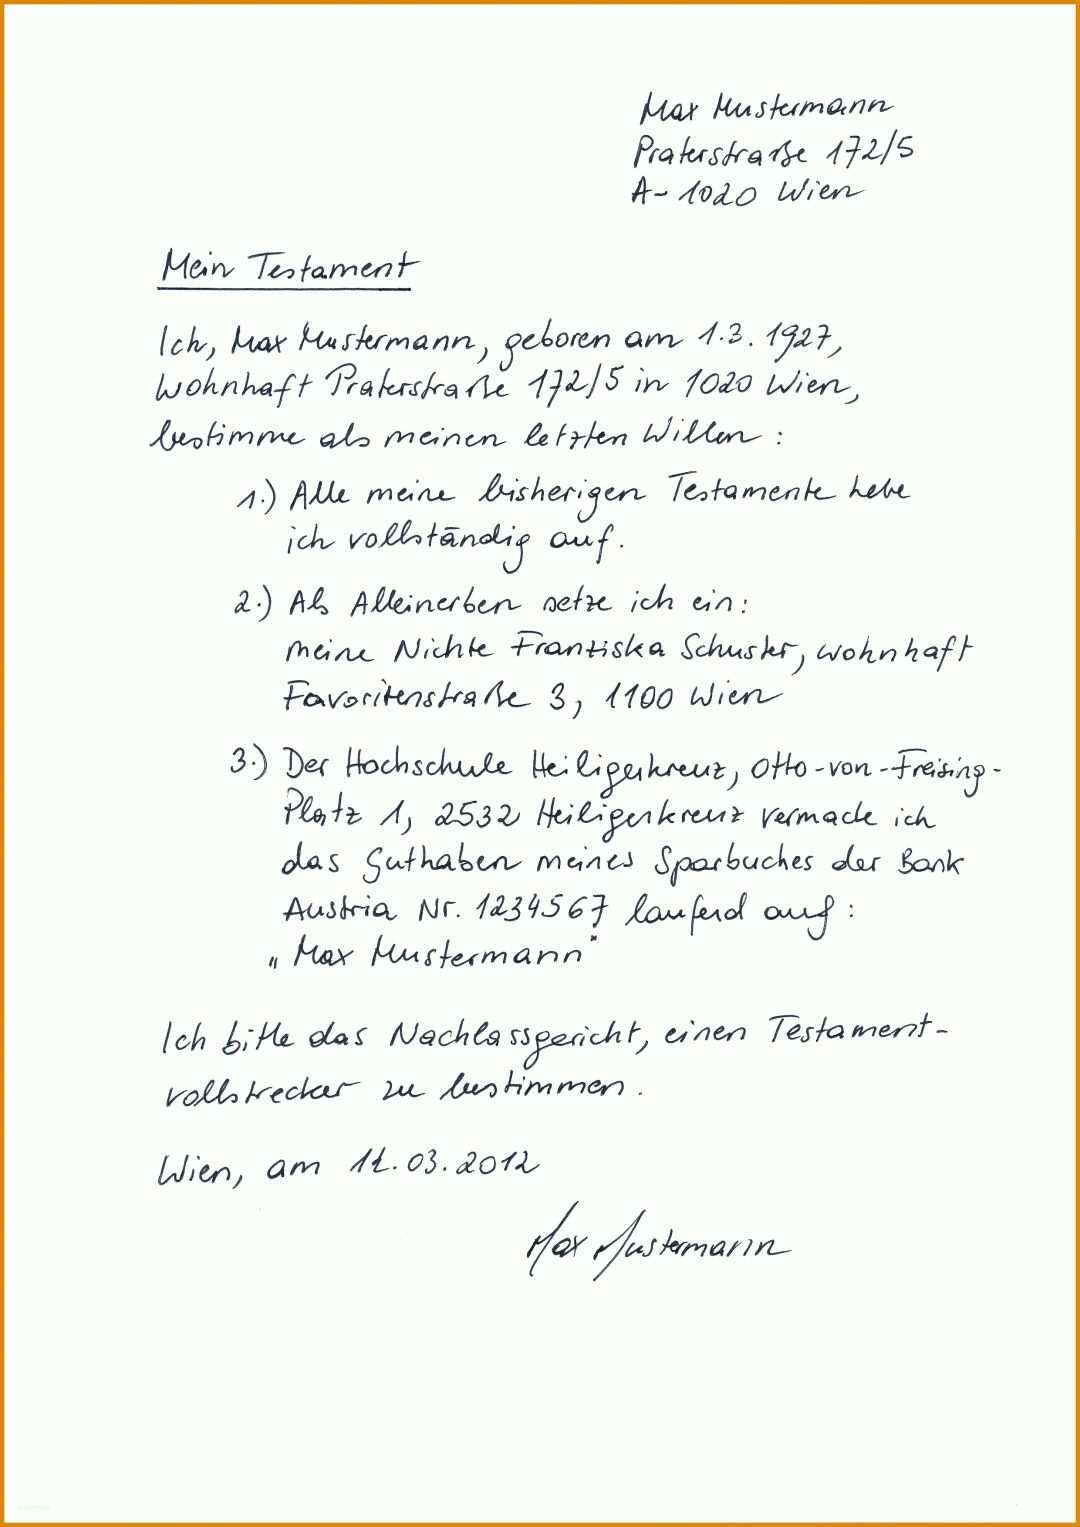 Max Mustermann
Praterstraße 172/5
A- 1020 Wien
Mein Testament
Ich, Max Mustermann, geboren am 1.3.1927,
wohnhaft Praterstraße 172/5 in 1020 Wien,
bestimme als meinen letzten Willen:
1.) Alle meine bisherigen Testamente hebe
ich vollständig auf.
2.) Als Alleinerben setze ich ein:
meine Nichte Franziska Schuster, wohnhaft
Favoritenstraße 3, 1100 Wien
3.) Der Hochschule Heiligenkreuz, Otto-von-Freising-
Platz 1, 2532 Heiligenkreuz vermache ich
das Guthaben meines Sparbuches der Bank
Austria Nr. 1234567 laufend auf:
„Max Mustermann"
Ich bitte das Nachlassgericht, einen Testament-
vollstrecker zu bestimmen.
Wien, am .03.2012
Max Mustermann